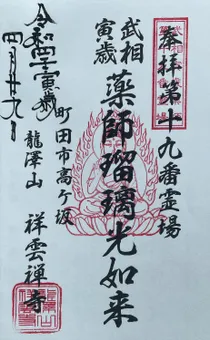 奉拝第十九番霊場
武相
寅歳
薬師瑠璃光如来
町田市高ヶ坂
龍澤山
祥雲禅寺
令和四壬寅歳
四月廿九日